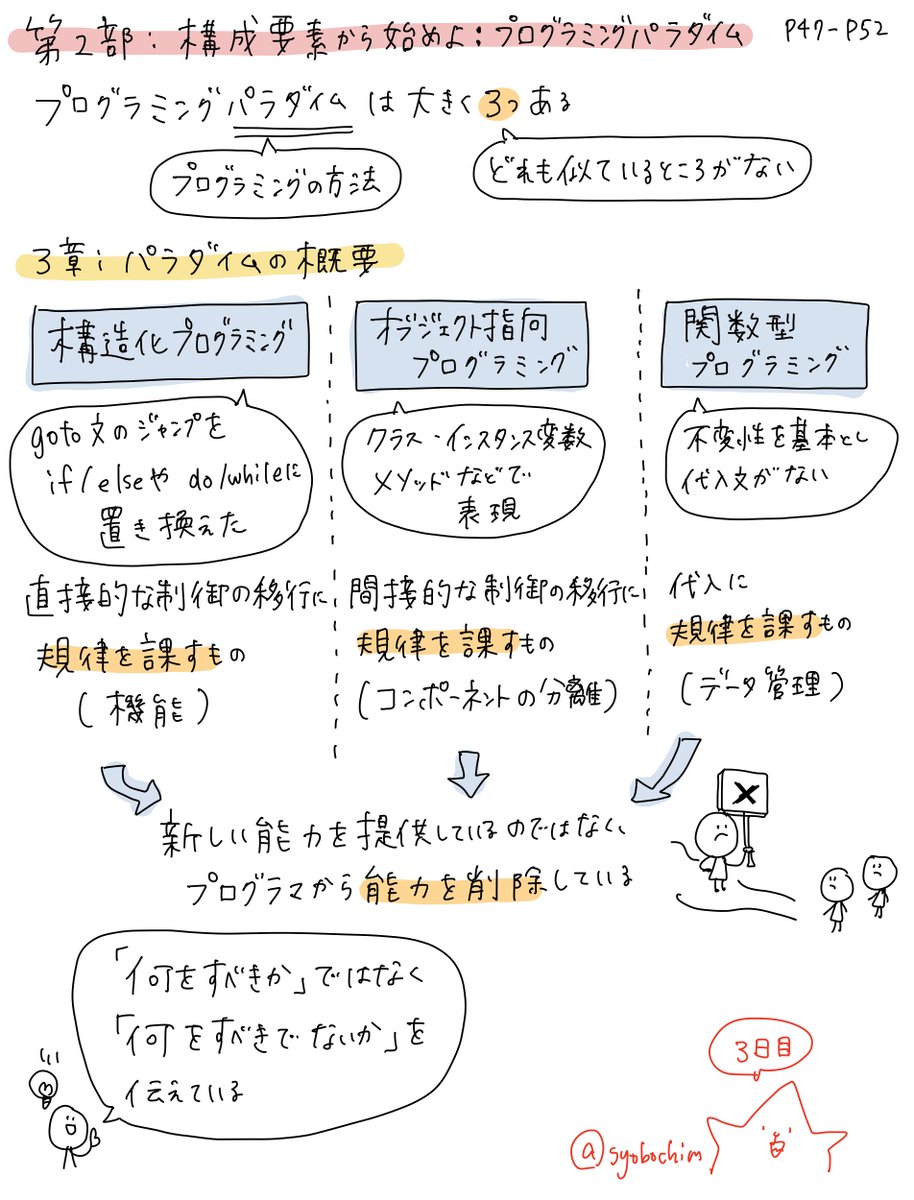 第2部：構成要素から始めよ：プログラミングパラダイム P47-P52
プログラミングパラダイムは大きく3つある
プログラミングの方法
どれも似ているところがない
3章：パラダイムの概要
構造化プログラミング
goto文のジャンプを
if/elseや do/whileに
置き換えた
直接的な制御の移行に
規律を課すもの
(機能)
オブジェクト指向
プログラミング
クラス・インスタンス変数
メソッドなどで
表現
間接的な制御の移行に
規律を課すもの
(コンポーネントの分離)
関数型
プログラミング
不変性を基本とし
代入文がない
代入に
規律を課すもの
(データ管理)
新しい能力を提供しているのではなく、
プログラマから能力を削除している
×
「何をすべきか」ではなく
「何をすべきでないか」を
伝えている
3日目
@syobochim